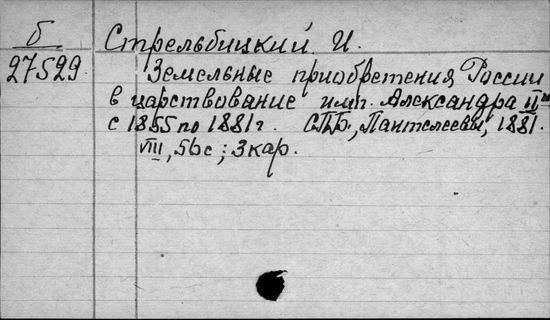 б Стрельбицкий И.
27529. Земельные приобретения России
в царствование имп. Александра II го
с 1855 по 1881 г. СПБ, Пантелеевы, 1881.
VIII, 56 с; 3 кар.